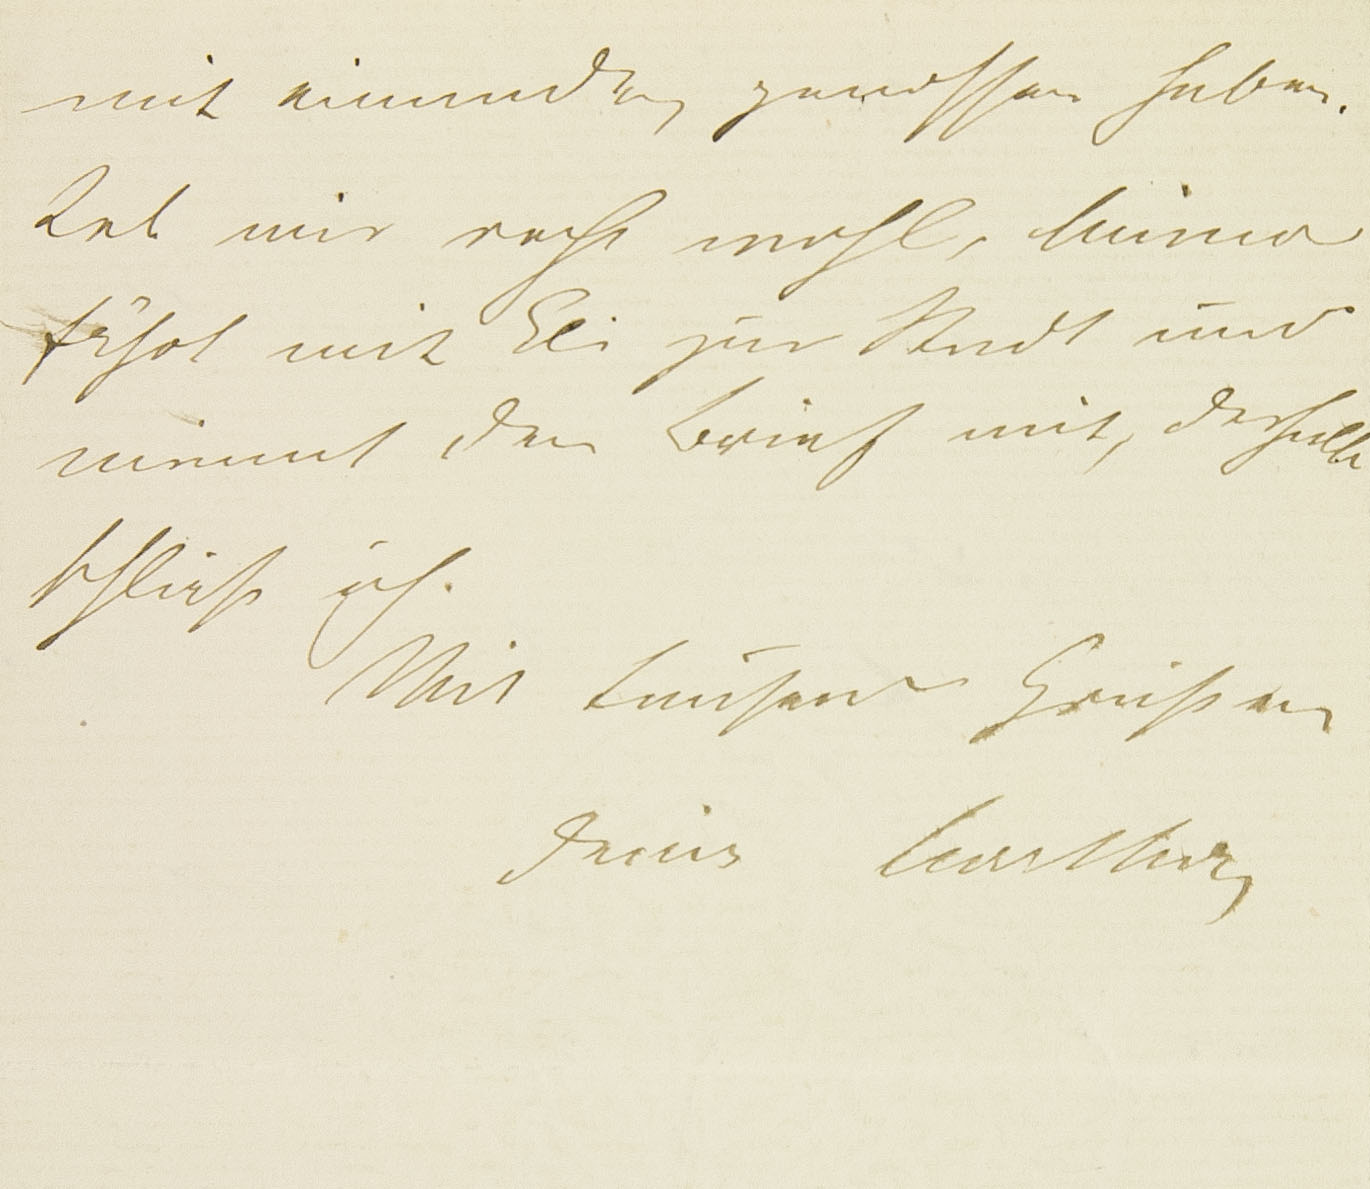 mit einander genossen haben.
Leb mir recht wohl, Minna
fährt mit Eli zur Stadt und
nimmt den Brief mit, deshalb
schließe ich.
Mit tausend Grüßen
Deine